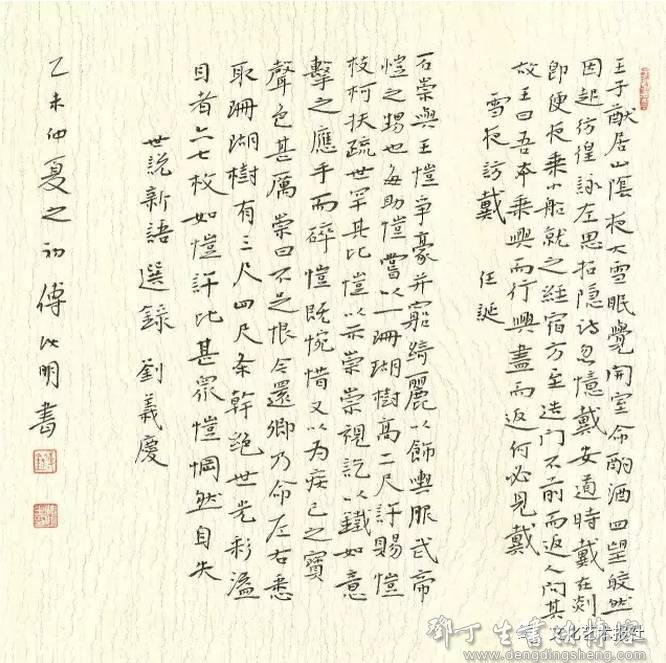 王子猷居山陰夜大雪眠覺開室命酌酒四望皎然
因起彷徨詠左思招隐詩忽憶戴安道時戴在剡
即便夜乘小船就之經宿方至造門不前而返人问其
故王曰吾本乘興而行興盡而返何必見戴
雪夜訪戴 任誕
石崇與王愷争豪并窮綺麗以飾輿服武帝
愷之甥也每助愷嘗以一珊瑚樹高二尺許賜愷
枝柯扶疏世罕其比愷以示崇崇視訖以鐵如意
擊之應手而碎愷既惋惜又以为疾己之寶
聲色甚厲崇曰不足恨今還卿乃命左右悉
取珊瑚樹有三尺四尺条幹絕世光彩溢
目者六七枚如愷許比甚眾愷惘然自失
世説新語選錄 劉義慶
乙未仲夏之初傅明書
文化艺术报社
鄧丁生書法博客
www.dengdingsheng.com